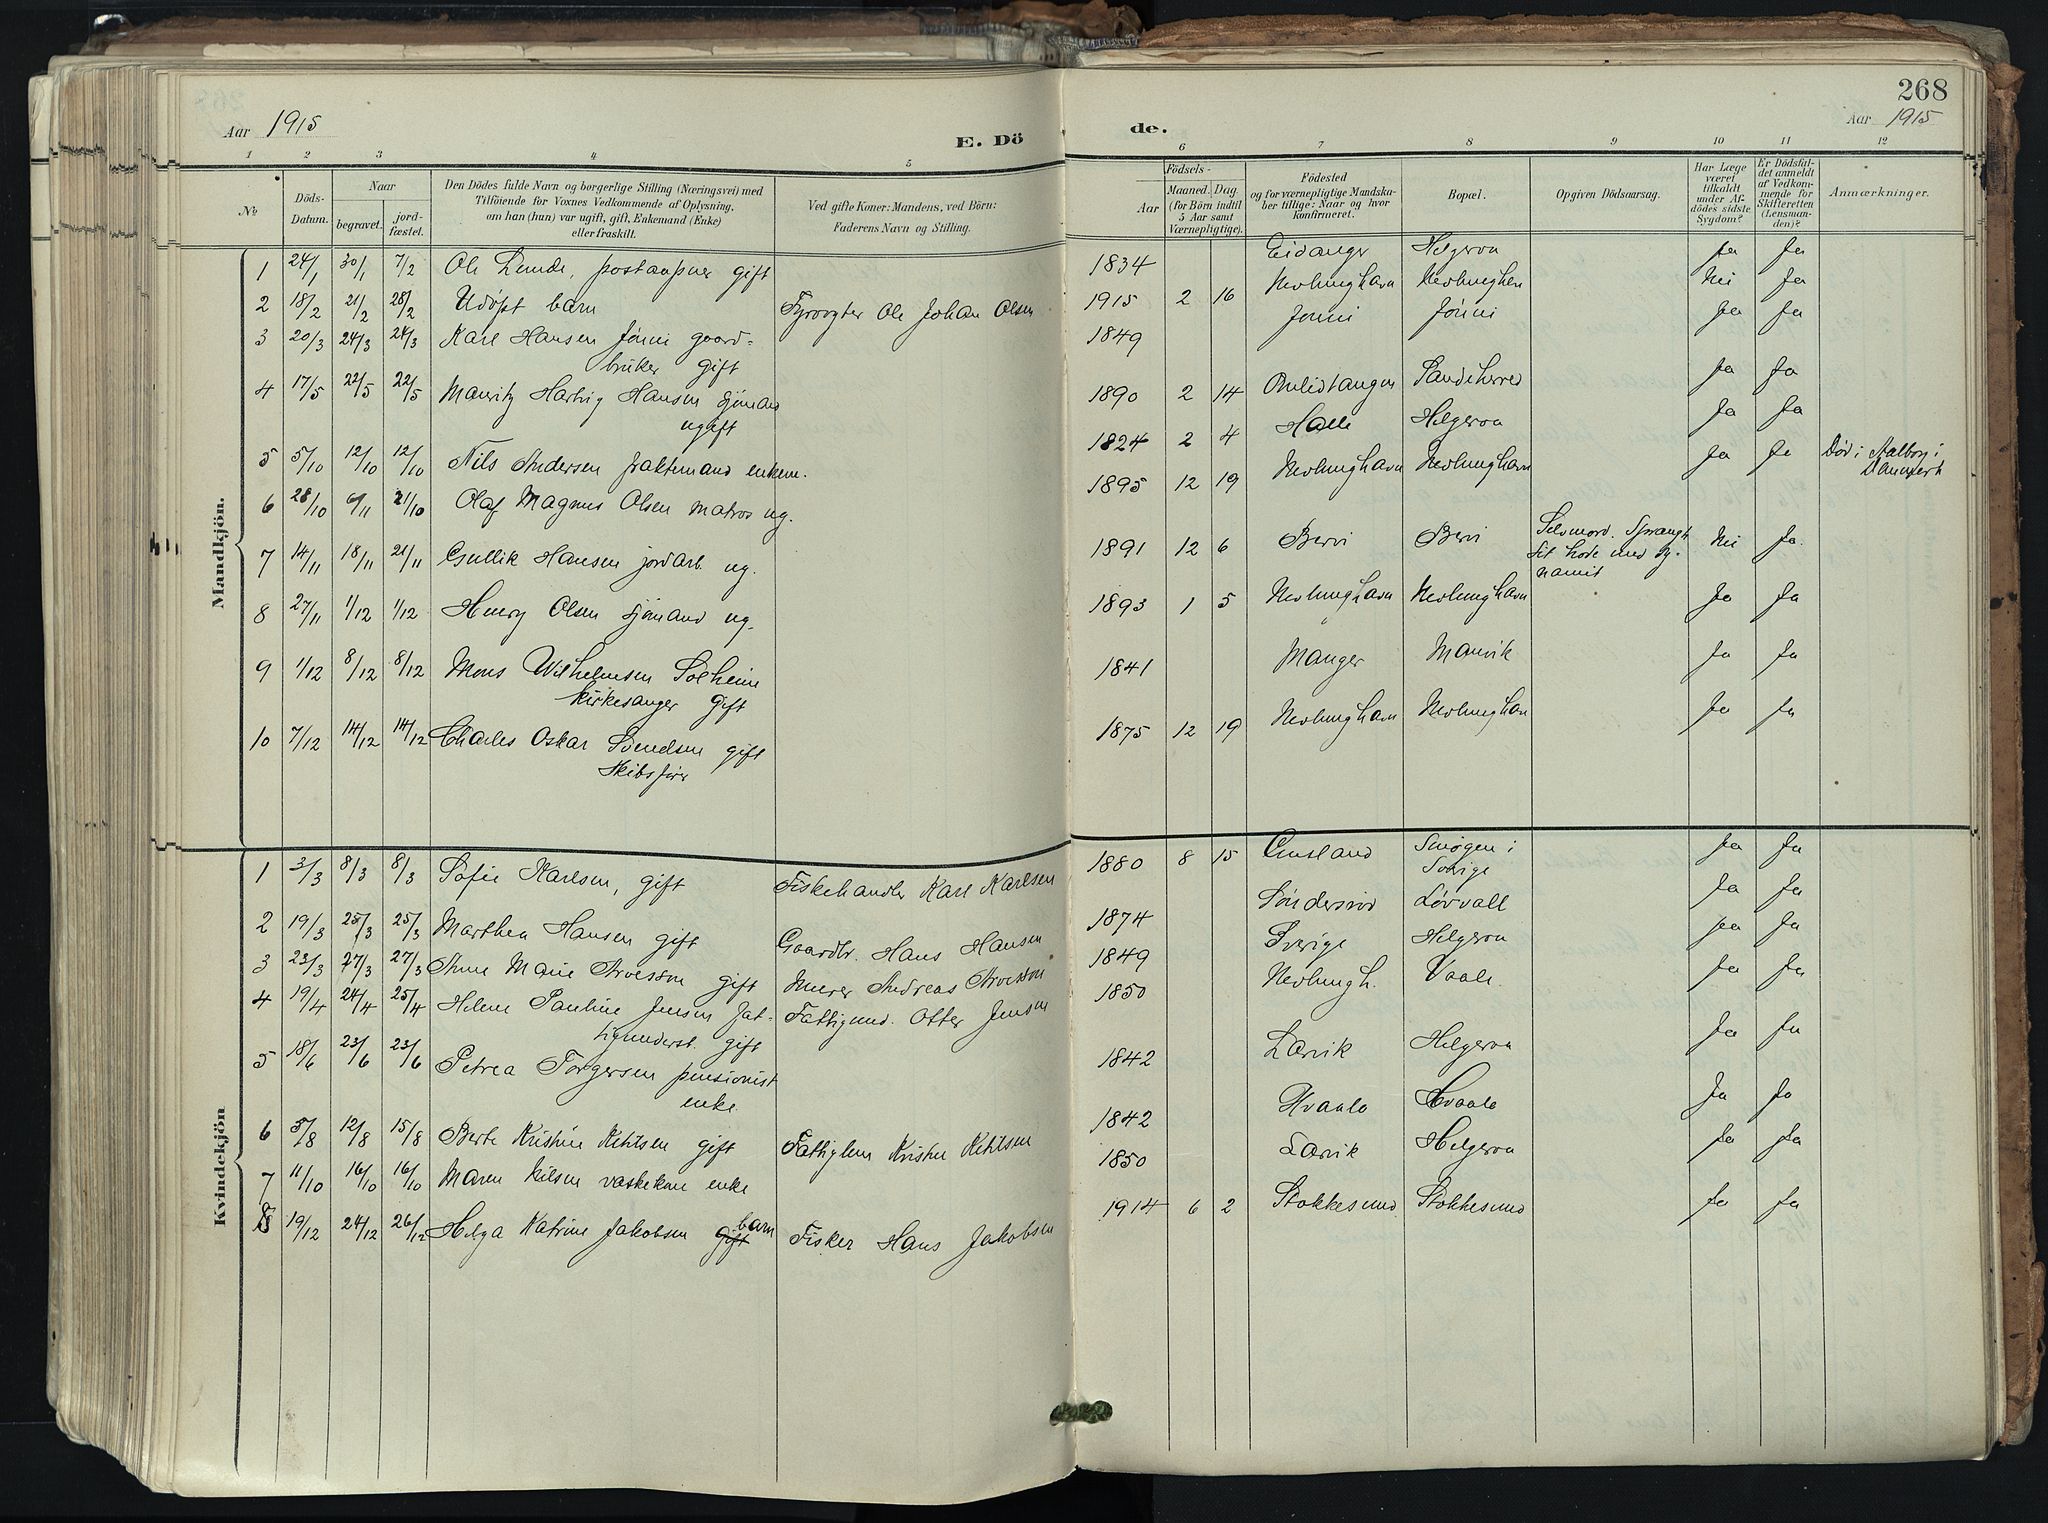 268
Aar 1915
E. Dö
de.
Aar 1915
1 2 3 4 5 6 7 8 9 10 11 12
№
Döds-
Datum.
Naar
begravet.
jord-
fæstet.
Den Dödes fulde Navn og borgerlige Stilling (Næringsvei) med
Tilföiende for Voxnes Vedkommende af Oplysning,
om han (hun) var ugift, gift, Enkemand (Enke)
eller fraskilt.
Ved gifte Koner: Mandens, ved Börn:
Faderens Navn og Stilling.
Födsels-
Aar
Maaned. Dag.
(for Börn indtil
5 Aar samt
Værnepligtige).
Födested
og for værnepligtige Mandska-
ber tillige: Naar og hvor
konfirmeret.
Bopæl.
Opgiven Dödsaarsag.
Har Læge
været
tilkaldt
under Af-
dödes sidste
Sygdom?
Er Dödsfal-
det anmeldt
af Vedkom-
mende for
Skifteretten
(Lensman-
den)?
Anmærkninger.
Mandkjön.
1 24/1 30/1 7/2 Ole Lunde, postaapner gift 1834 Eidanger Helgeroa Ja Ja
2 18/2 21/2 28/2 Udøpt barn Fyrvogter Ole Johan Olsen 1915 2 16 Nevlunghavn Nevlunghvn Nei Ja
3 20/3 24/3 24/3 Karl Hansen Jønni gaard-
bruker gift 1849 Jonni Jonni Ja Ja
4 17/5 22/5 22/5 Mauritz Hartvig Hansen sjømand
ugift 1890 2 14 Sandeherred Ja Ja
5 5/10 12/10 12/10 Nils Andersen fraktemand enkem. 1824 2 4 Halle Helgeroa Ja Ja
6 28/10 6/11 21/10 Olaf Magnus Olsen matros ug. 1895 12 19 Nevlunghavn Nevlunghavn Ja Ja Død i Aalborg i
Danmark
7 14/11 18/11 21/11 Gullik Hansen jordarb. ug. 1891 12 6 Bervi Bervi Selvmord. Sprængt
sit hode med dy-
namit Nei Ja.
8 27/11 1/12 1/12 Henry Olsen sjømand ug. 1893 1 5 Nevlunghavn Nevlunghavn Ja Ja
9 1/12 8/12 8/12 Mons Wilhelmsen Solheim
kirkesanger gift 1841 Manger Manvik Ja Ja
10 7/12 14/12 14/12 Charles Oskar Svendsen gift
skibsfører 1875 12 19 Nevlunghavn Nevlunghavn Ja Ja
Kvindekjön
1 3/3 8/3 8/3 Sofie Karlsen, gift Fiskehandler Karl Karlsen 1880 8 15 Gusland Smøgen i
Sverige Ja Ja
2 19/3 25/3 25/3 Marthea Hansen gift Gaardbr. Hans Hansen 1874 Søndersrød Løvvall Ja Ja
3 23/3 27/3 27/3 Anne Marie Arvesson gift Murer Andreas Arvesson 1849 Sverige Helgeroa Ja Ja
4 19/4 24/4 25/4 Helene Pauline Jensen fat-
tigunderst. gift Fattigund. Otter Jensen 1850 Nevlungh. Vaale. Ja Ja
5 18/6 23/6 23/6 Petrea Torgersen pensionist
enke 1842 Larvik Helgeroa Ja Ja
6 5/8 12/8 15/8 Berte Kristine Ketilsen gift Fattiglem Kristen Ketilsen 1842 Hvaale Hvaale Ja Ja
7 11/10 16/10 16/10 Maren Nilsen vaskekone enke 1850 Larvik Helgeroa Ja Ja
8 19/12 24/12 26/12 Helga Katrine Jakobsen gift barn Fisker Hans Jakobsen 1914 6 2 Stokkesund Stokkesund Ja Ja